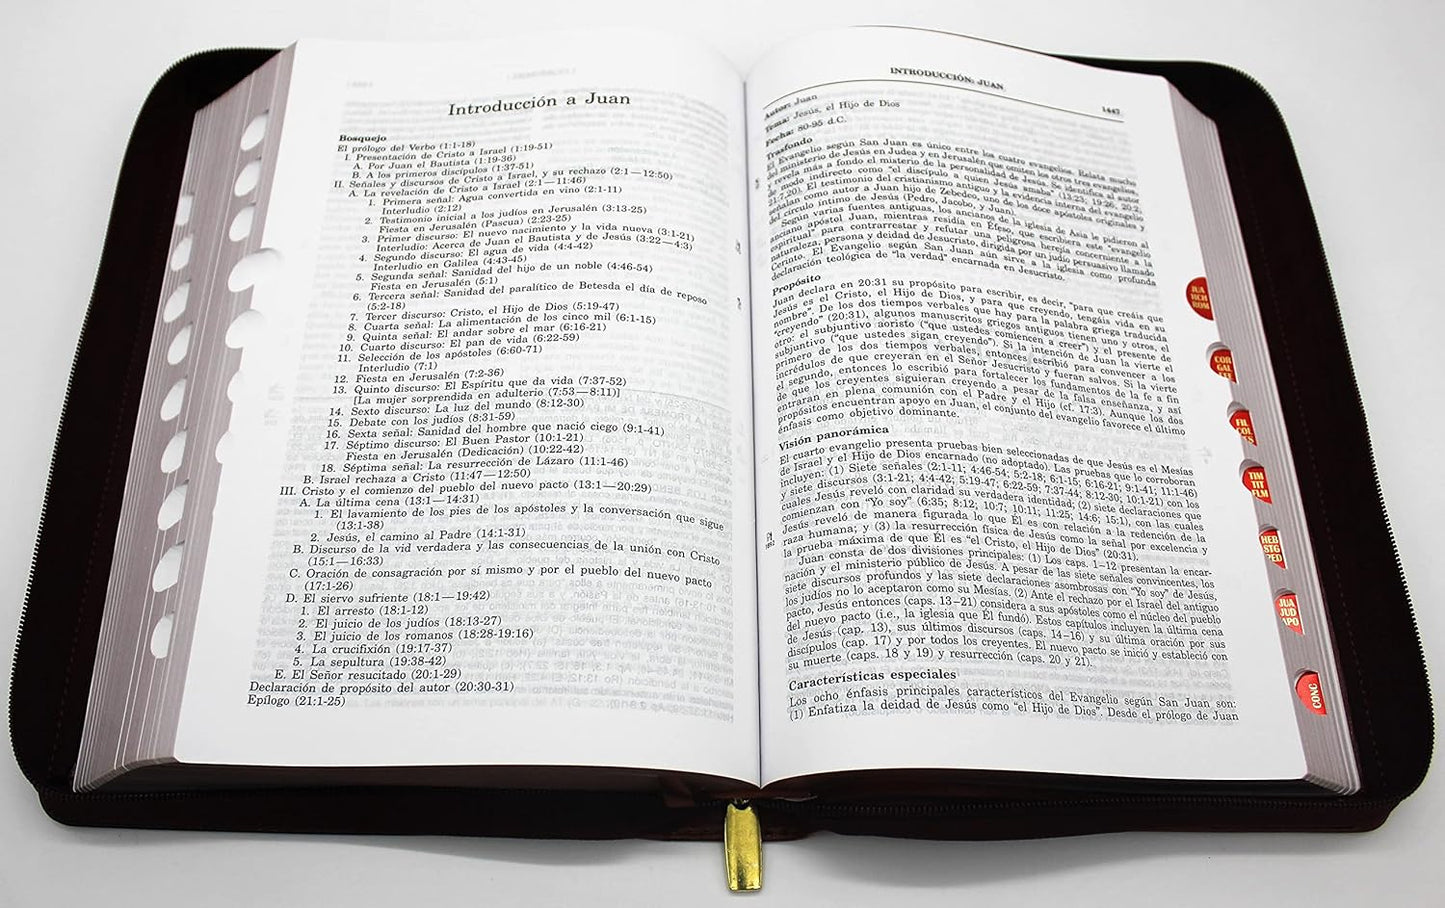 Introducción a Juan
Bosquejo
El prólogo del Verbo (1:1-18)
I. Presentación de Cristo a Israel (1:19-51)
A. Por Juan el Bautista (1:19-36)
B. A los primeros discípulos (1:37-51)
II. Señales y discursos de Cristo a Israel, y su rechazo (2:1—12:50)
A. La revelación de Cristo a Israel (2:1—11:46)
1. Primera señal: Agua convertida en vino (2:1-11)
Interludio (2:12)
2. Testimonio inicial a los judíos en Jerusalén (3:13-25)
Fiesta en Jerusalén (Pascua) (2:23-25)
3. Primer discurso: El nuevo nacimiento y la vida nueva (3:1-21)
Interludio: Acerca de Juan el Bautista y de Jesús (3:22—4:3)
4. Segundo discurso: El agua de vida (4:4-42)
Interludio en Galilea (4:43-45)
5. Segunda señal: Sanidad del hijo de un noble (4:46-54)
Fiesta en Jerusalén (5:1)
6. Tercera señal: Sanidad del paralítico de Betesda el día de reposo
(5:2-18)
7. Tercer discurso: Cristo, el Hijo de Dios (5:19-47)
8. Cuarta señal: La alimentación de los cinco mil (6:1-15)
9. Quinta señal: El andar sobre el mar (6:16-21)
10. Cuarto discurso: El pan de vida (6:22-59)
11. Selección de los apóstoles (6:60-71)
Interludio (7:1)
12. Fiesta en Jerusalén (7:2-36)
13. Quinto discurso: El Espíritu que da vida (7:37-52)
[La mujer sorprendida en adulterio (7:53—8:11)]
14. Sexto discurso: La luz del mundo (8:12-30)
15. Debate con los judíos (8:31-59)
16. Sexta señal: Sanidad del hombre que nació ciego (9:1-41)
17. Séptimo discurso: El Buen Pastor (10:1-21)
Fiesta en Jerusalén (Dedicación) (10:22-42)
18. Séptima señal: La resurrección de Lázaro (11:1-46)
B. Israel rechaza a Cristo (11:47—12:50)
III. Cristo y el comienzo del pueblo del nuevo pacto (13:1—20:29)
A. La última cena (13:1—14:31)
1. El lavamiento de los pies de los apóstoles y la conversación que sigue
(13:1-38)
2. Jesús, el camino al Padre (14:1-31)
B. Discurso de la vid verdadera y las consecuencias de la unión con Cristo
(15:1—16:33)
C. Oración de consagración por sí mismo y por el pueblo del nuevo pacto
(17:1-26)
D. El siervo sufriente (18:1—19:42)
1. El arresto (18:1-12)
2. El juicio de los judíos (18:13-27)
3. El juicio de los romanos (18:28-19:16)
4. La crucifixión (19:17-37)
5. La sepultura (19:38-42)
E. El Señor resucitado (20:1-29)
Declaración de propósito del autor (20:30-31)
Epílogo (21:1-25)
INTRODUCCIÓN: JUAN
1447
Autor: Juan
Tema: Jesús, el Hijo de Dios
Fecha: 80-95 d.C.
Trasfondo
El Evangelio según San Juan es único entre los cuatro evangelios. Relata mucho
del ministerio de Jesús en Judea y en Jerusalén que omiten los otros tres evangelios
y revela más a fondo el misterio de la personalidad de Jesús. Se identifica al autor
de modo indirecto como "el discípulo a quien Jesús amaba" (13:23; 19:26; 20:2;
21:7,20). El testimonio del cristianismo antiguo y la evidencia interna del evangelio
señalan como autor a Juan hijo de Zebedeo, uno de los doce apóstoles originales y
del círculo íntimo de Jesús (Pedro, Jacobo, y Juan).
Según varias fuentes antiguas, los ancianos de la iglesia de Asia le pidieron al
anciano apóstol Juan, mientras residía en Éfeso, que escribiera este "evangelio
espiritual" para contrarrestar y refutar una peligrosa herejía concerniente a la
naturaleza, persona y deidad de Jesucristo, dirigida por un judío persuasivo llamado
Cerinto. El Evangelio según San Juan aún sirve a la iglesia como profunda
declaración teológica de "la verdad" encarnada en Jesucristo.
Propósito
Juan declara en 20:31 su propósito para escribir, es decir, "para que creáis que
Jesús es el Cristo, el Hijo de Dios, y para que creyendo, tengáis vida en su
nombre". De los dos tiempos verbales que hay para la palabra griega traducida
"creyendo" (20:31), algunos manuscritos griegos antiguos tienen uno y otros, el
otro: el subjuntivo aoristo ("que ustedes comiencen a creer") y el presente de
subjuntivo ("que ustedes sigan creyendo"). Si la intención de Juan la vierte el
primero de los dos tiempos verbales, entonces escribió para convencer a los
incrédulos de que creyeran en el Señor Jesucristo y fueran salvos. Si la vierte
el segundo, entonces lo escribió para fortalecer los fundamentos de la fe a fin
de que los creyentes siguieran creyendo a pesar de la falsa enseñanza, y así
entraran en plena comunión con el Padre y el Hijo (cf. 17:3). Aunque los dos
propósitos encuentran apoyo en Juan, el conjunto del evangelio favorece el último
énfasis como objetivo dominante.
Visión panorámica
El cuarto evangelio presenta pruebas bien seleccionadas de que Jesús es el Mesías
de Israel y el Hijo de Dios encarnado (no adoptado). Las pruebas que lo corroboran
incluyen: (1) Siete señales (2:1-11; 4:46-54; 5:2-18; 6:1-15; 6:16-21; 9:1-41; 11:1-46)
y siete discursos (3:1-21; 4:4-42; 5:19-47; 6:22-59; 7:37-44; 8:12-30; 10:1-21) con los
cuales Jesús reveló con claridad su verdadera identidad; (2) siete declaraciones que
comienzan con "Yo soy" (6:35; 8:12; 10:7; 10:11; 11:25; 14:6; 15:1), con las cuales
Jesús reveló de manera figurada lo que Él es con relación a la redención de la
raza humana; y (3) la resurrección física de Jesús como la señal por excelencia y
la prueba máxima de que Él es "el Cristo, el Hijo de Dios" (20:31).
Juan consta de dos divisiones principales: (1) Los caps. 1–12 presentan la encar-
nación y el ministerio público de Jesús. A pesar de las siete señales convincentes, los
siete discursos profundos y las siete declaraciones asombrosas con "Yo soy" de Jesús,
los judíos no lo aceptaron como su Mesías. (2) Ante el rechazo por el Israel del antiguo
pacto, Jesús entonces (caps. 13–21) considera a sus apóstoles como el núcleo del pueblo
del nuevo pacto (i.e., la iglesia que Él fundó). Estos capítulos incluyen la última cena
de Jesús (cap. 13), sus últimos discursos (caps. 14–16) y su última oración por sus
discípulos (cap. 17) y por todos los creyentes. El nuevo pacto se inició y estableció con
su muerte (caps. 18 y 19) y resurrección (caps. 20 y 21).
Características especiales
Los ocho énfasis principales característicos del Evangelio según San Juan son:
(1) Enfatiza la deidad de Jesús como "el Hijo de Dios". Desde el prólogo de Juan
JUA
HCH
ROM
COR
GAL
FIL
COL
TIM
TIT
FLM
HEB
STG
PED
JUA
JUD
APO
CONC